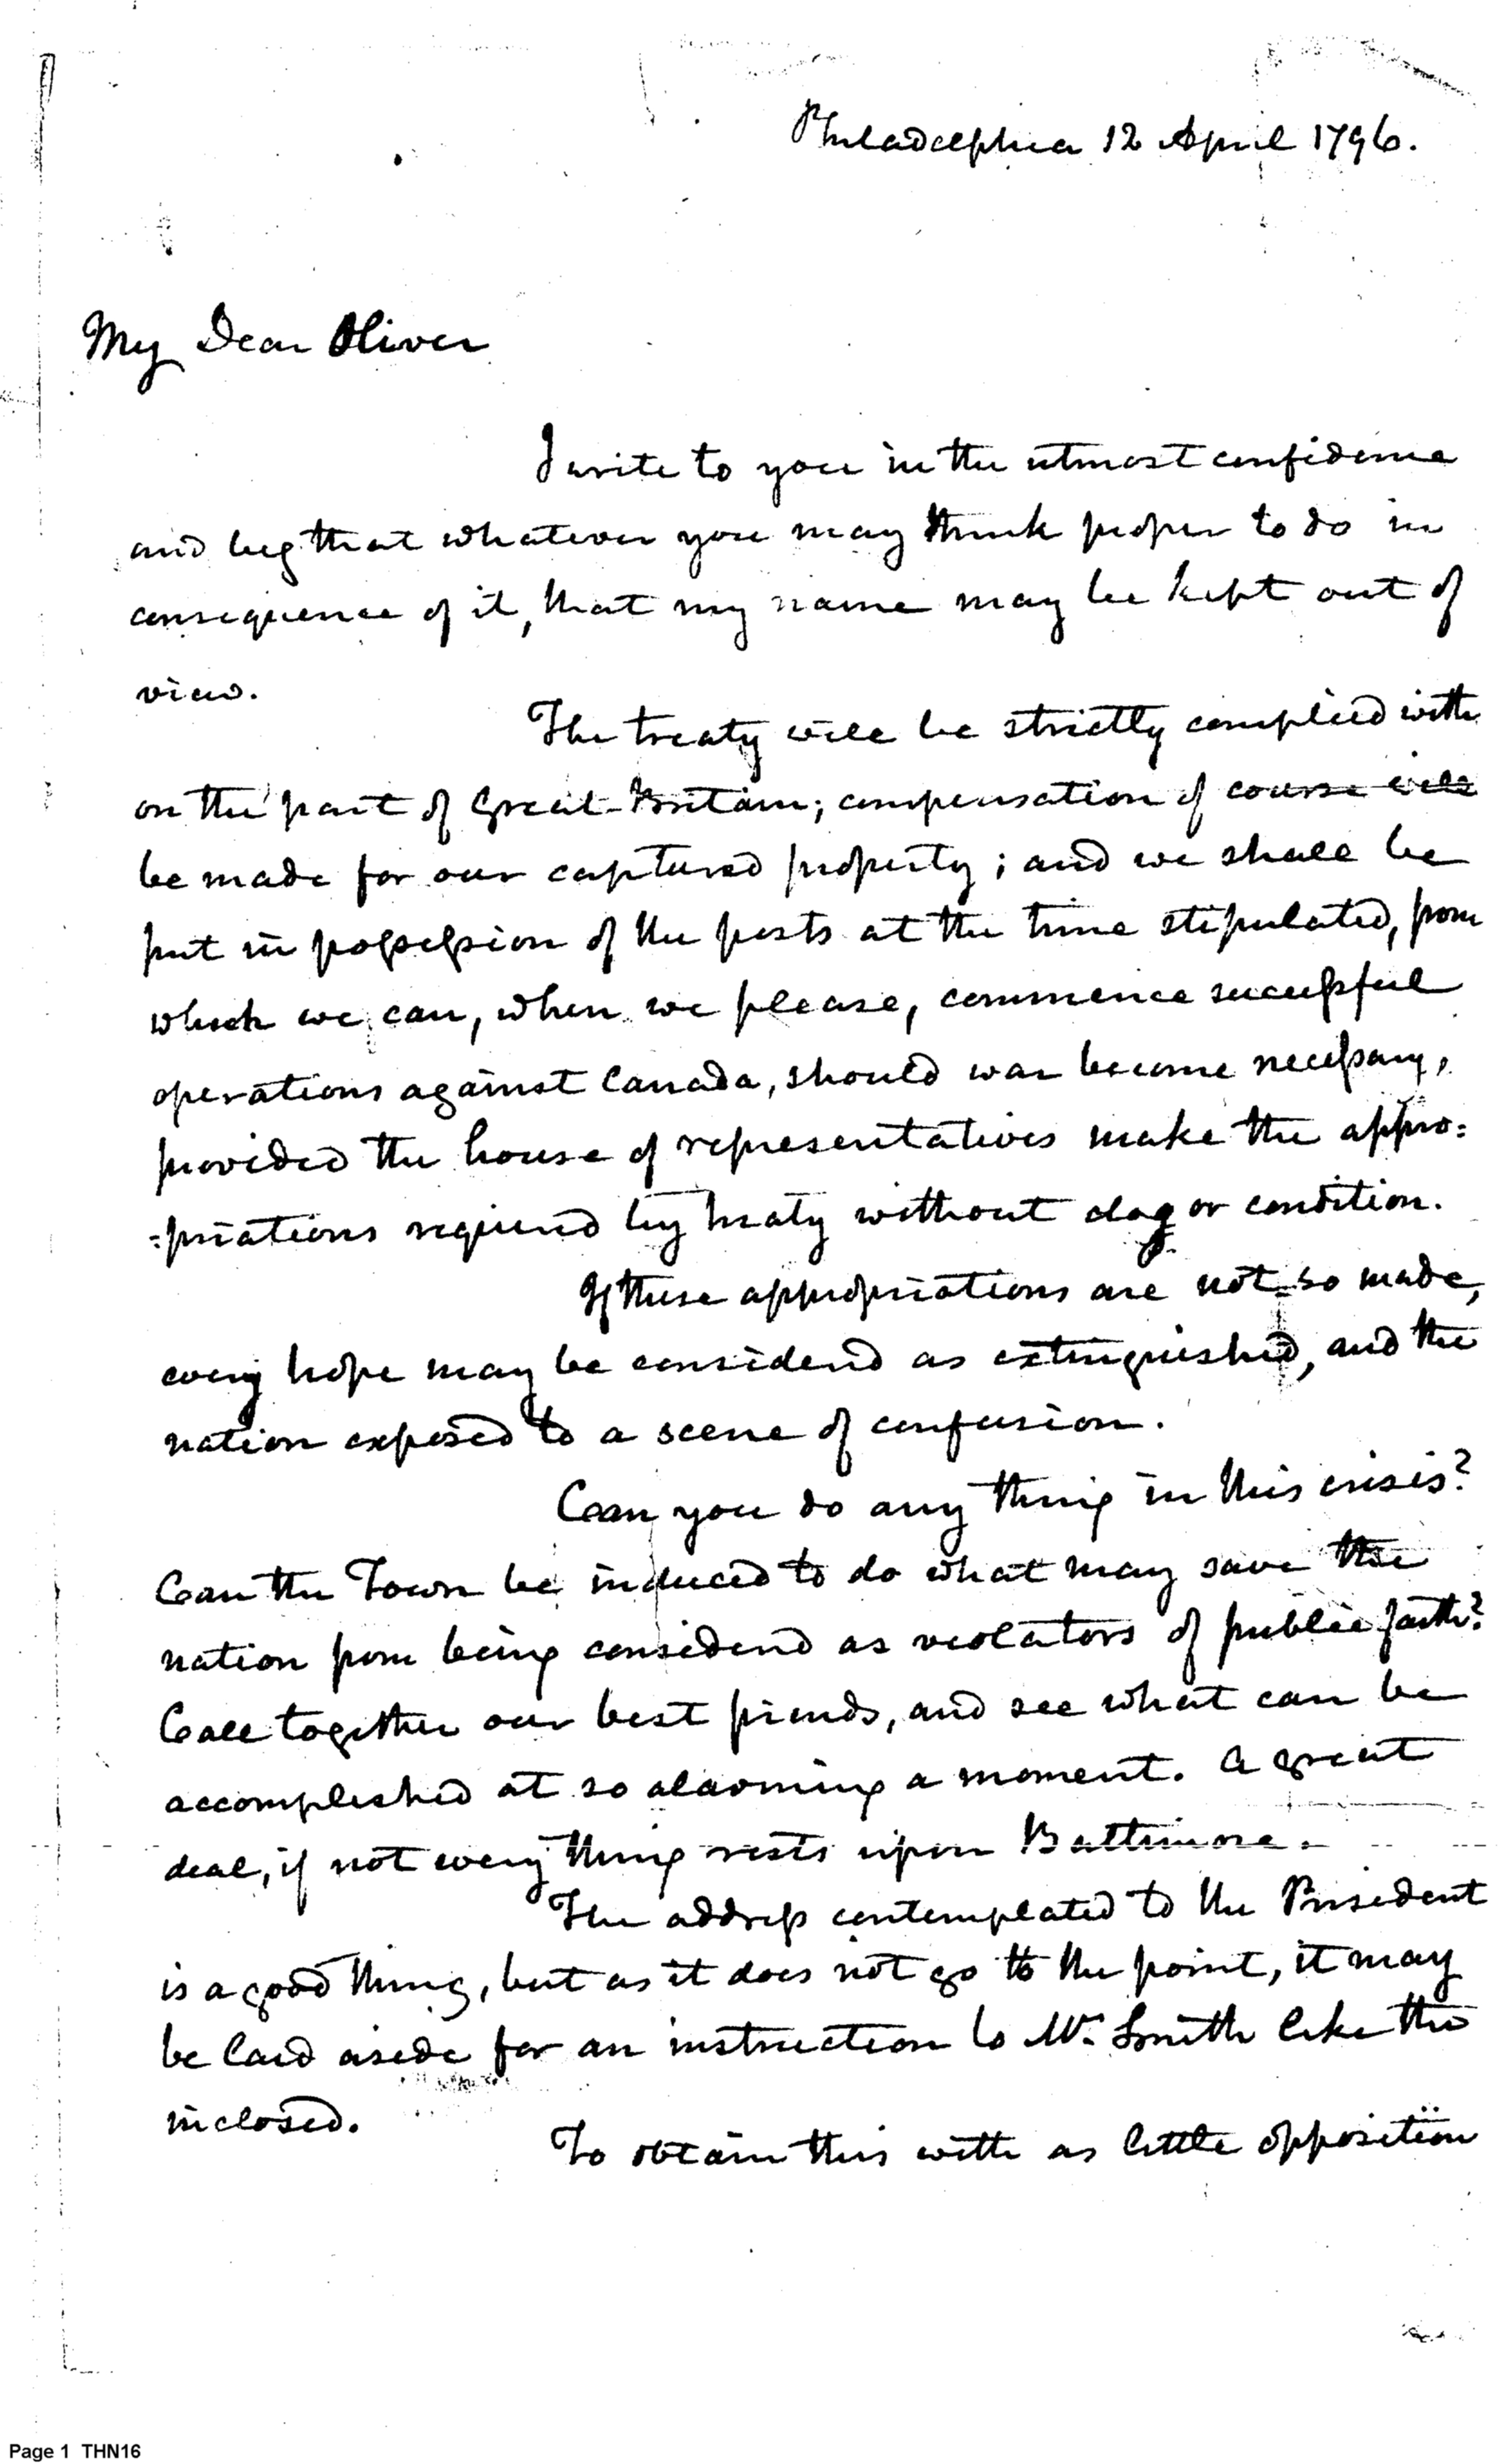 Philadelphia 12 April 1796.
My Dear Oliver
I write to you in the utmost confidence
and beg that whatever you may think proper to do in
consequence of it, that my name may be kept out of
view.
The treaty will be strictly complied with
on the part of Great-Britain; compensation of course will
be made for our captured property; and we shall be
put in possession of the posts at the time stipulated, from
which we can, when we please, commence successful
operations against Canada, should war become necessary,
provided the house of representatives make the appro=
=priations required by treaty without clog or condition.
If these appropriations are not so made,
every hope may be considered as extinguished, and the
nation exposed to a scene of confusion.
Can you do any thing in this crisis?
Can the Town be induced to do what may save the
nation from being considered as violators of public faith?
Call together our best friends, and see what can be
accomplished at so alarming a moment. A great
deal, if not every thing rests upon Baltimore.
The address contemplated to the President
is a good thing, but as it does not go to the point, it may
be laid aside for an instruction to Mr. Smith like the
inclosed.
To obtain this with as little opposition
Page 1 THN16